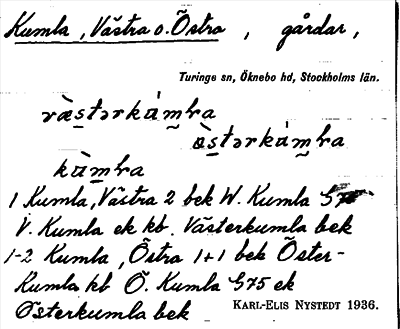 Kumla, Västra o. Östra, gårdar,
Turinge sn, Öknebo hd, Stockholms län.
1 Kumla, Västra 2 bek W. Kumla
V. Kumla ek kb. Västerkumla bek
1-2 Kumla, Östra 1+1 bek Öster-
Kumla kb Ö. Kumla G75 ek
Österkumla bek
KARL-ELIS NYSTEDT 1936.